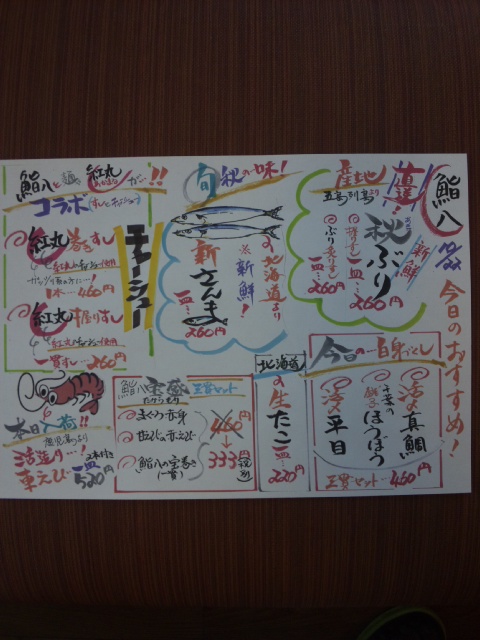 鮨八
今日のおすすめ!
産地
直送!
五島列島より
秋ぶり
新鮮
握りずし
ぶり炙りずし
一皿…260円
旬秋の味!
北海道より
※新鮮!
新さんま
一皿…260円
鮨八と麺や紅丸が…!!
コラボ
チャーシュー
紅丸巻きずし
一本…460円
紅丸握りずし
一貫ずし…260円
今日の白身づくし
活〆真鯛
千葉の
ほうぼう
活〆平目
三貫セット…460円
北海道の生たこ
一皿…220円
鮨八宝箱三貫セット
まぐろ赤身
鮨八の宝巻き
(一貫)
460円
333円
(税別)
本日入荷!!
鹿児島より
活造り…!
車えび…一皿520円
2本付き